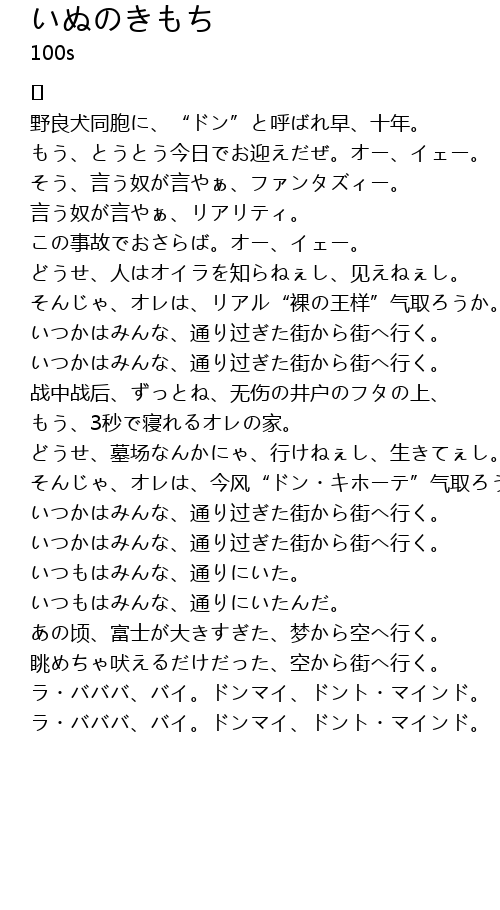 いぬのきもち
100s
野良犬同胞に、“ドン”と呼ばれ早、十年。
もう、とうとう今日でお迎えだぜ。オー、イェー。
そう、言う奴が言やぁ、ファンタズィー。
言う奴が言やぁ、リアリティ。
この事故でおさらば。オー、イェー。
どうせ、人はオイラを知らねぇし、见えねぇし。
そんじゃ、オレは、リアル“裸の王样”气取ろうか。
いつかはみんな、通り过ぎた街から街へ行く。
いつかはみんな、通り过ぎた街から街へ行く。
战中战后、ずっとね、无伤の井户のフタの上、
もう、3秒で寝れるオレの家。
どうせ、墓场なんかにゃ、行けねぇし、生きてぇし。
そんじゃ、オレは、今风“ドン・キホーテ”气取ろう
いつかはみんな、通り过ぎた街から街へ行く。
いつかはみんな、通り过ぎた街から街へ行く。
いつもはみんな、通りにいた。
いつもはみんな、通りにいたんだ。
あの顷、富士が大きすぎた、梦から空へ行く。
眺めちゃ吠えるだけだった、空から街へ行く。
ラ・バババ、バイ。ドンマイ、ドント・マインド。
ラ・バババ、バイ。ドンマイ、ドント・マインド。